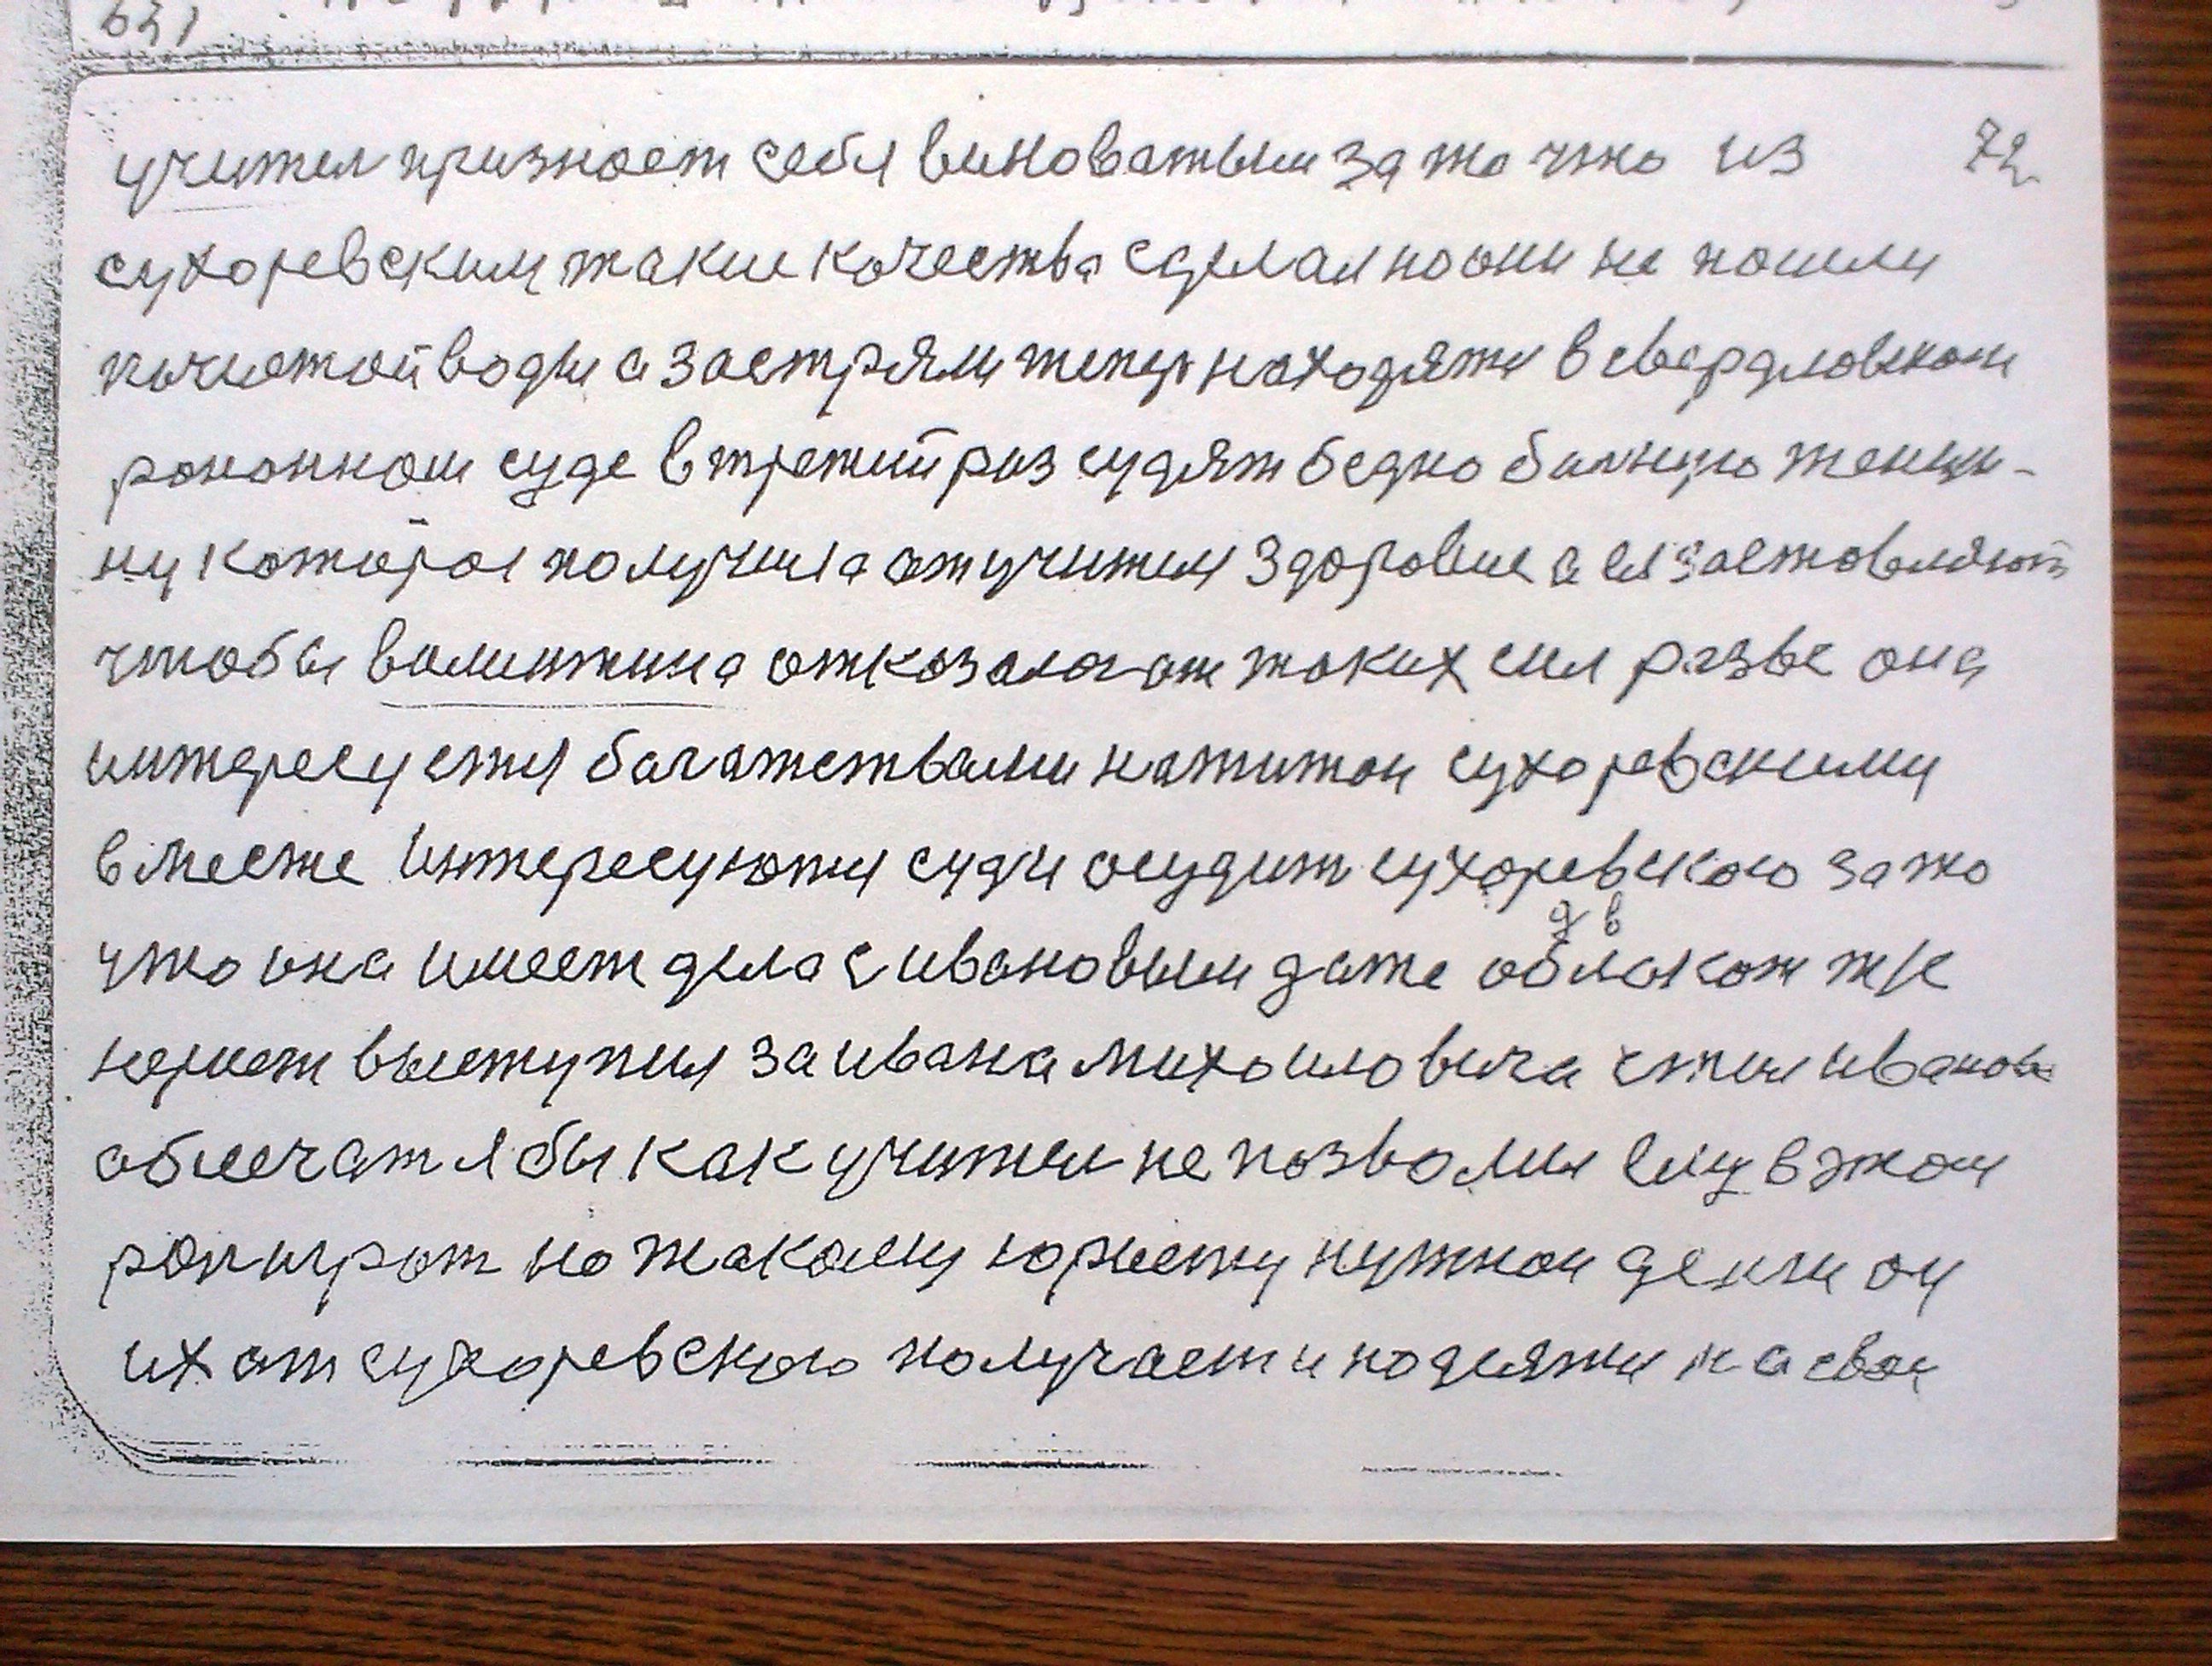 учител признает себя виноватым за то что из 72
сухоревским такие качества сделал но они не пошли
по чистой воды а застряли тепер находятся в свердловском
раионном суде в третий раз судят бедно болную женщи-
ну которая получила от учителя здоровие а ея заставляют
чтобы валинтина отказалас от таких сил разве она
интересуется багатствами натитой сухоревскими
вместе интересуются суди осудит сухоревского за то
что она имеет дела с ивановым даже
юрист выступил за ивана михоиловича стил иванова
обличат я бы как учител не позволил ему в этой
рол играт но такому юристу нужной денги он
их от сухоревского получает и надеятся на свои